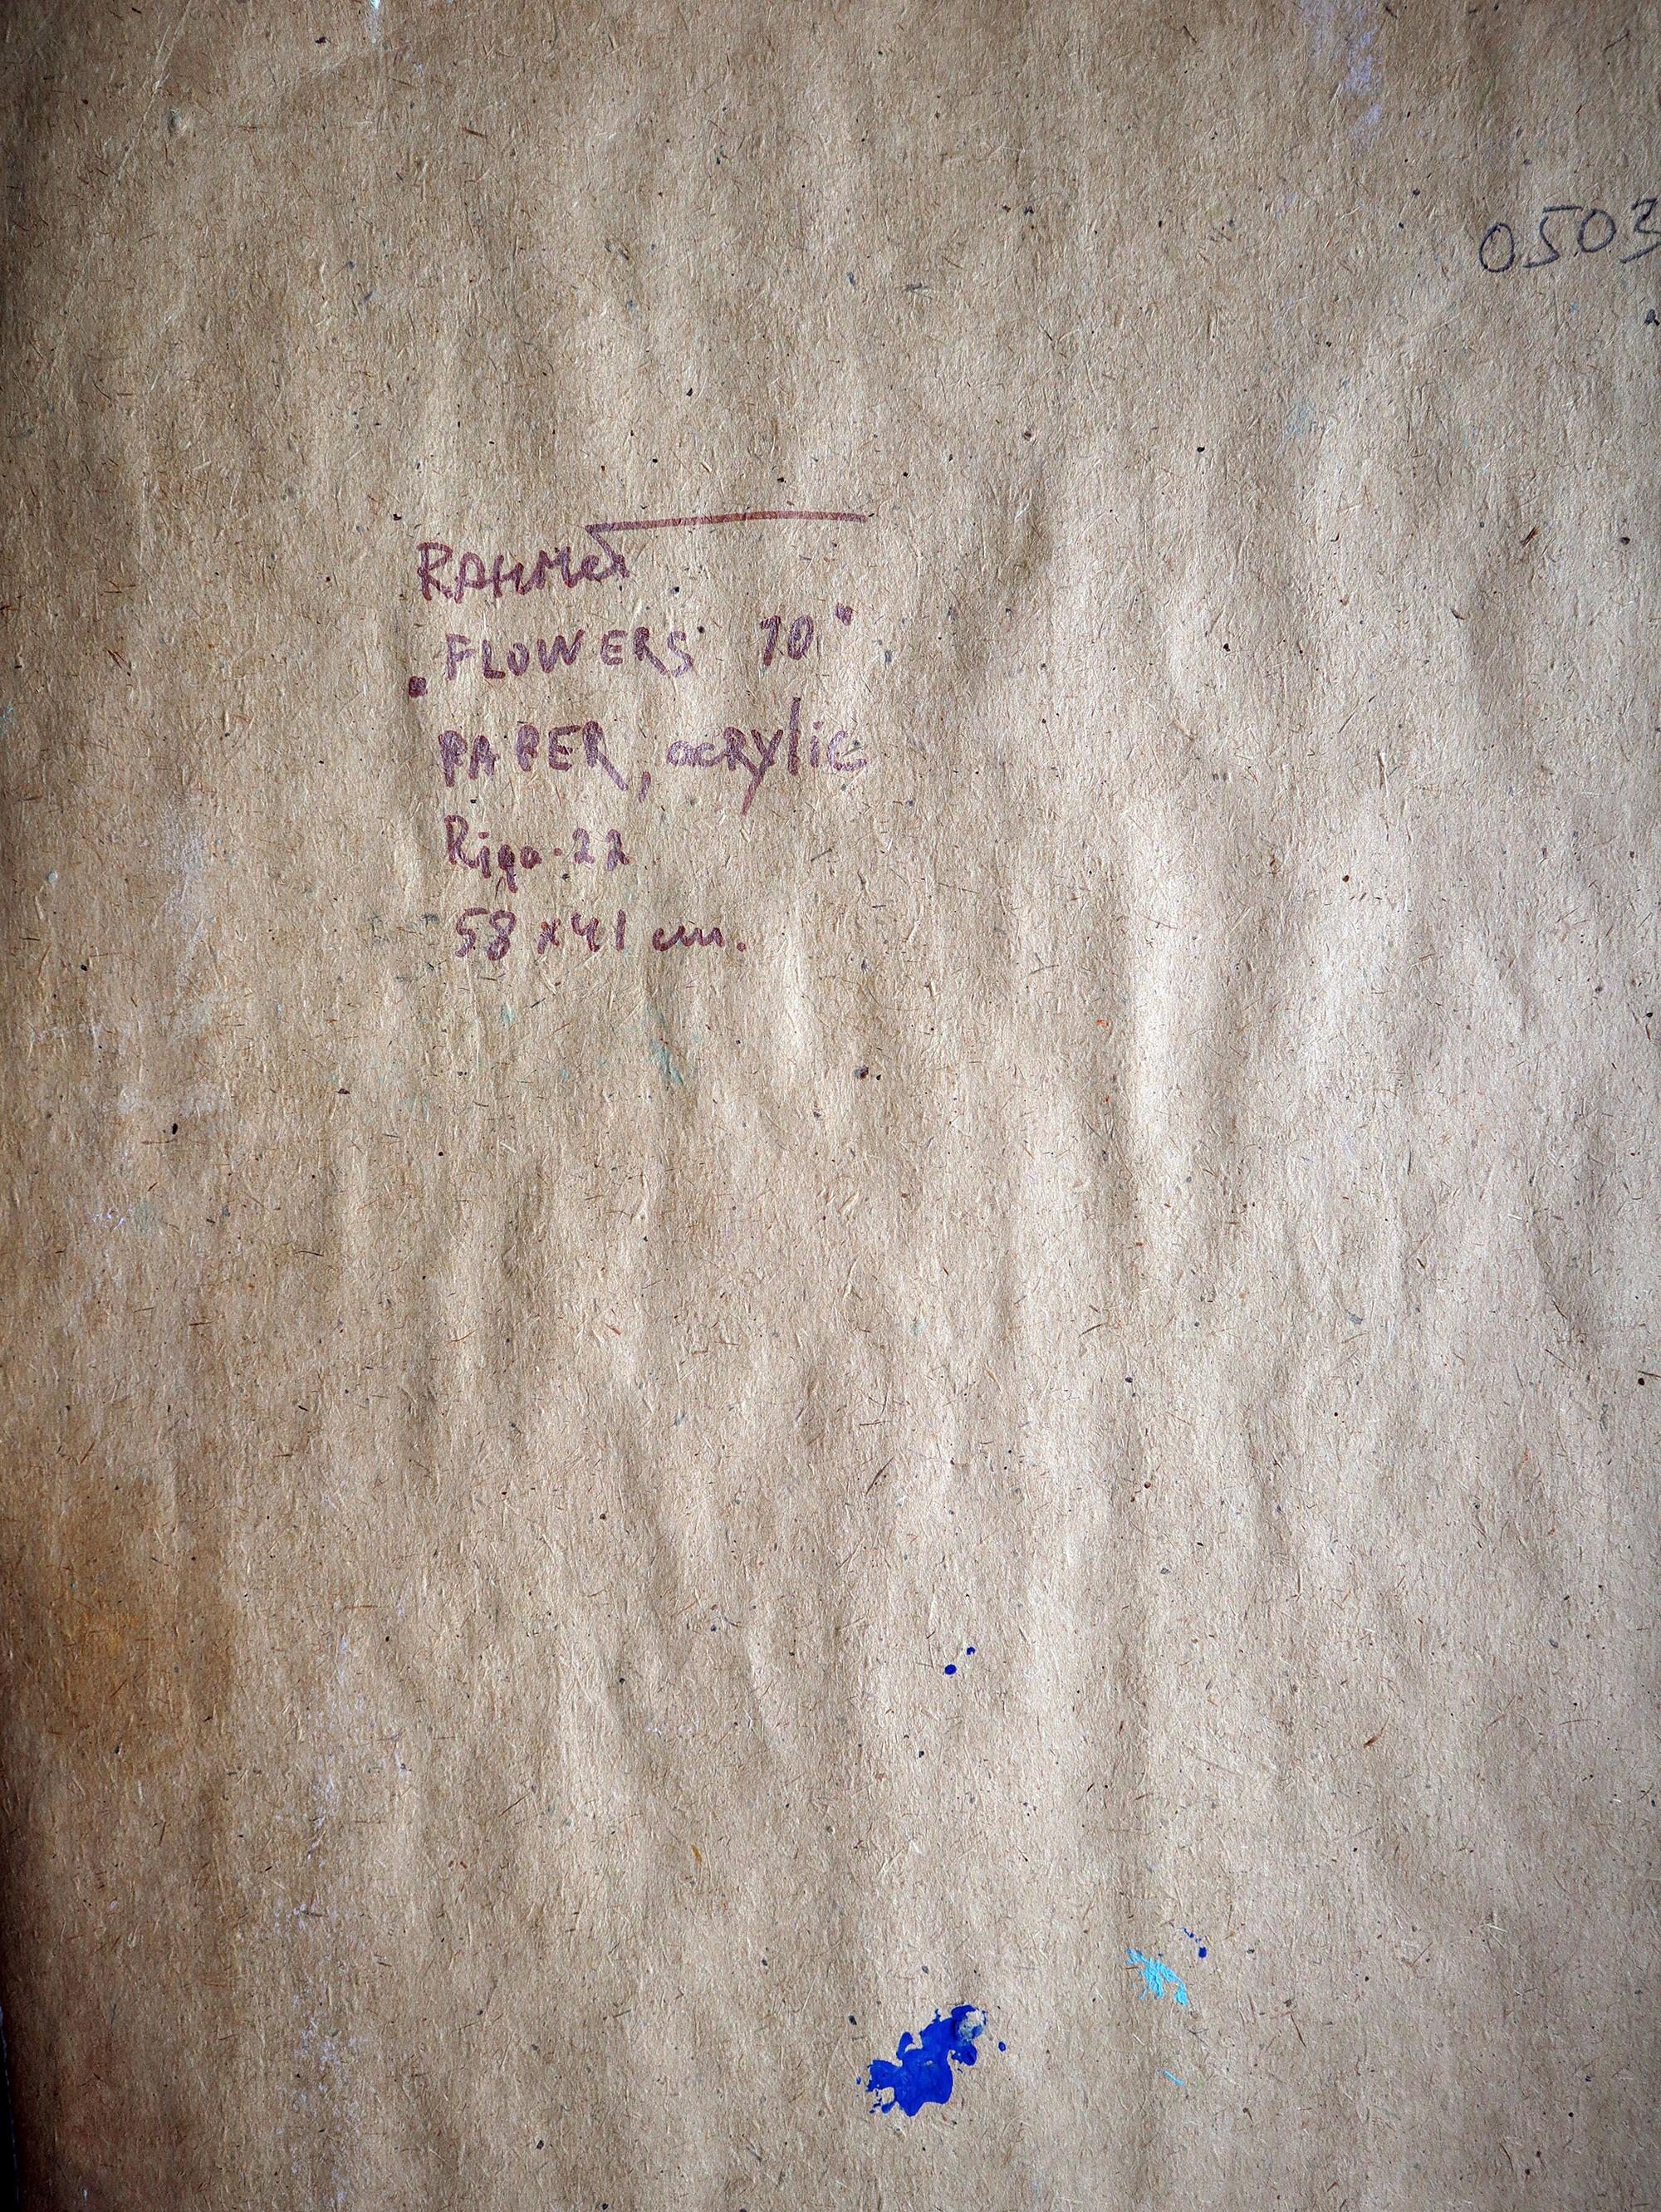 0503
RAHMET
„FLOWERS 10"
PAPER, acRylic
Riga-22
58 x 41 cm.